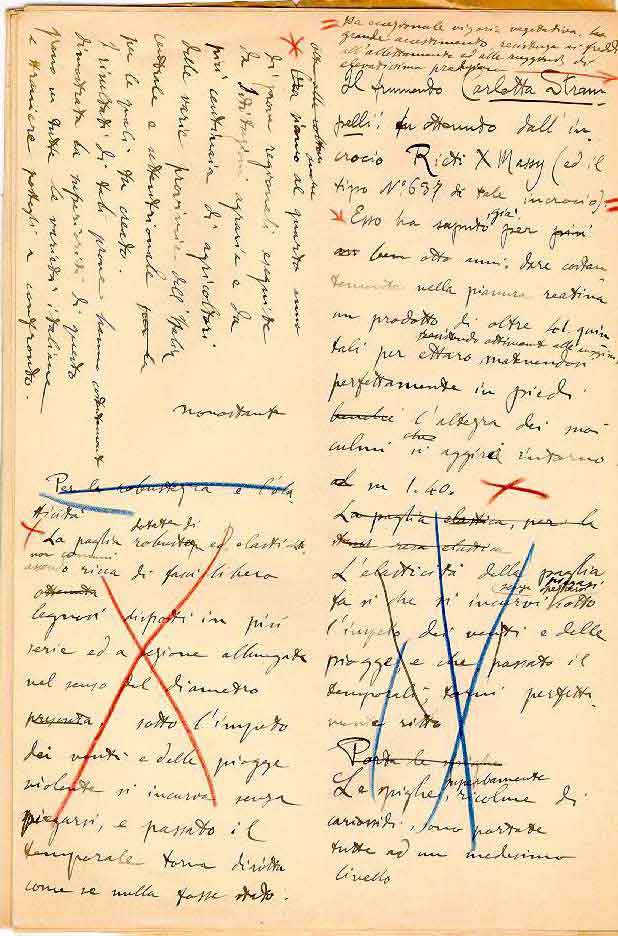 siamo al quarto anno
di prove regionali eseguite
da Istituzioni agrarie e da
più centinaia di agricoltori
delle varie provincie dell'Italia
centrale e settentrionale
per le quali fu creato.
I risultati di tali prove hanno costantemente
dimostrata la superiorità di questo
grano su tutte le varietà italiane
e straniere a confronto.
nonostante
Per la robustezza e l'ela
sticità
dotata di
La paglia robusta ed elastica
non comuni
essendo ricca di fasci libero
legnosi disposti in più
serie ed a sezione allungata
nel senso del diametro
presenta, sotto l'impeto
dei venti e delle piogge
violente si incurva senza
piegarsi, e passato il
temporale torna diritta
come se nulla fosse stato.
Ha eccezionale vigoria vegetativa, ha
grande accestimento, resistenza ai freddi
all'allettamento ed alle ruggini, di
elevatissima produzione
Il frumento Carlotta Stram
pelli, fu ottenuto dall'in
crocio Rieti X Massy (ed il
tipo N° 637 di tale incrocio).
Esso ha saputo già per più
ben otto anni, dare costan
temente nella pianura reatina
un prodotto di oltre 40 quin
resistendo ottimamente alle ruggini,
tali per ettaro, matenendosi
perfettamente in piedi
benché l'altezza dei suoi
culmi che si aggiri intorno
ad m 1.40.
La paglia elastica, per la
elastica
L'elasticità della paglia
fa sì che si incurvi senza spezzarsi sotto
l'impeto dei venti e delle
piogge e che, passato il
temporale, torni perfetta
mente ritta
Porta le spighe
Le spighe, superbamente ricolme di
cariossidi, sono portate
tutte ad un medesimo
livello